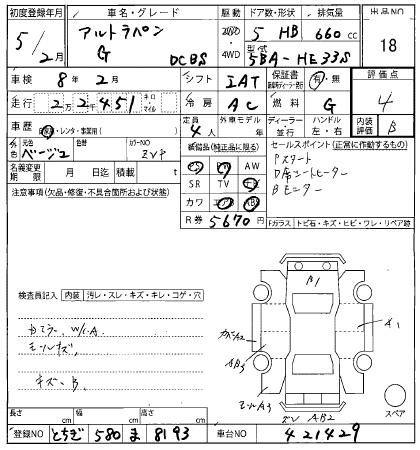 初度登録年月 車名・グレード 駆動 ドア数・形状 排気量 出品NO
5/2月 アルトラパン G DCBS 2WD・4WD 5 HB 660cc 18
型式 5BA-HE33S
車検 8年2月 シフト IAT 保証書 有・無 評価点
走行 2万2千451 キロ・マイル 冷房 AC 燃料 G 4
車歴 自家用・レンタ・事業用( ) 定員 4人 外車モデル 年 ディーラー 並行 ハンドル 左・右 内装評価 B
色 元色 ベージュ 色替 カラーNO ZVP
装備品(純正品に限る) セールスポイント(正常に作動するもの)
名義変更期限 月 日迄 積載 t
PS PW AW
SR TV ナビ
カワ エアB ABS
R券 5670円
Pスタート
D席シートヒーター
Bモニター
注意事項(欠品・修復・不具合箇所および状態)
Fガラス トビ石・キズ・ヒビ・ワレ・リペア跡
検査員記入 内装 汚レ・スレ・キズ・キレ・コゲ・穴
W/A
キズ、B
B1
A2
A1
AB3
A3
AB2
スペア
長さ cm 幅 cm 高さ cm
登録NO とちぎ 580 ま 8193 車台NO 421429